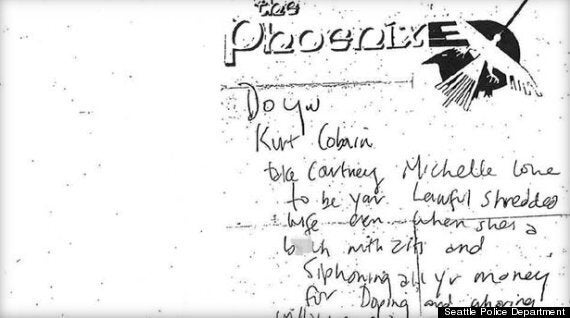 the
Phoenix
Do you
Kurt Cobain
take Cortney Michelle Love
to be your Lawful shredded
wife even when shes a
b ch with zits and
Siphoning all yr money
for Doping and whoring
Seattle Police Department